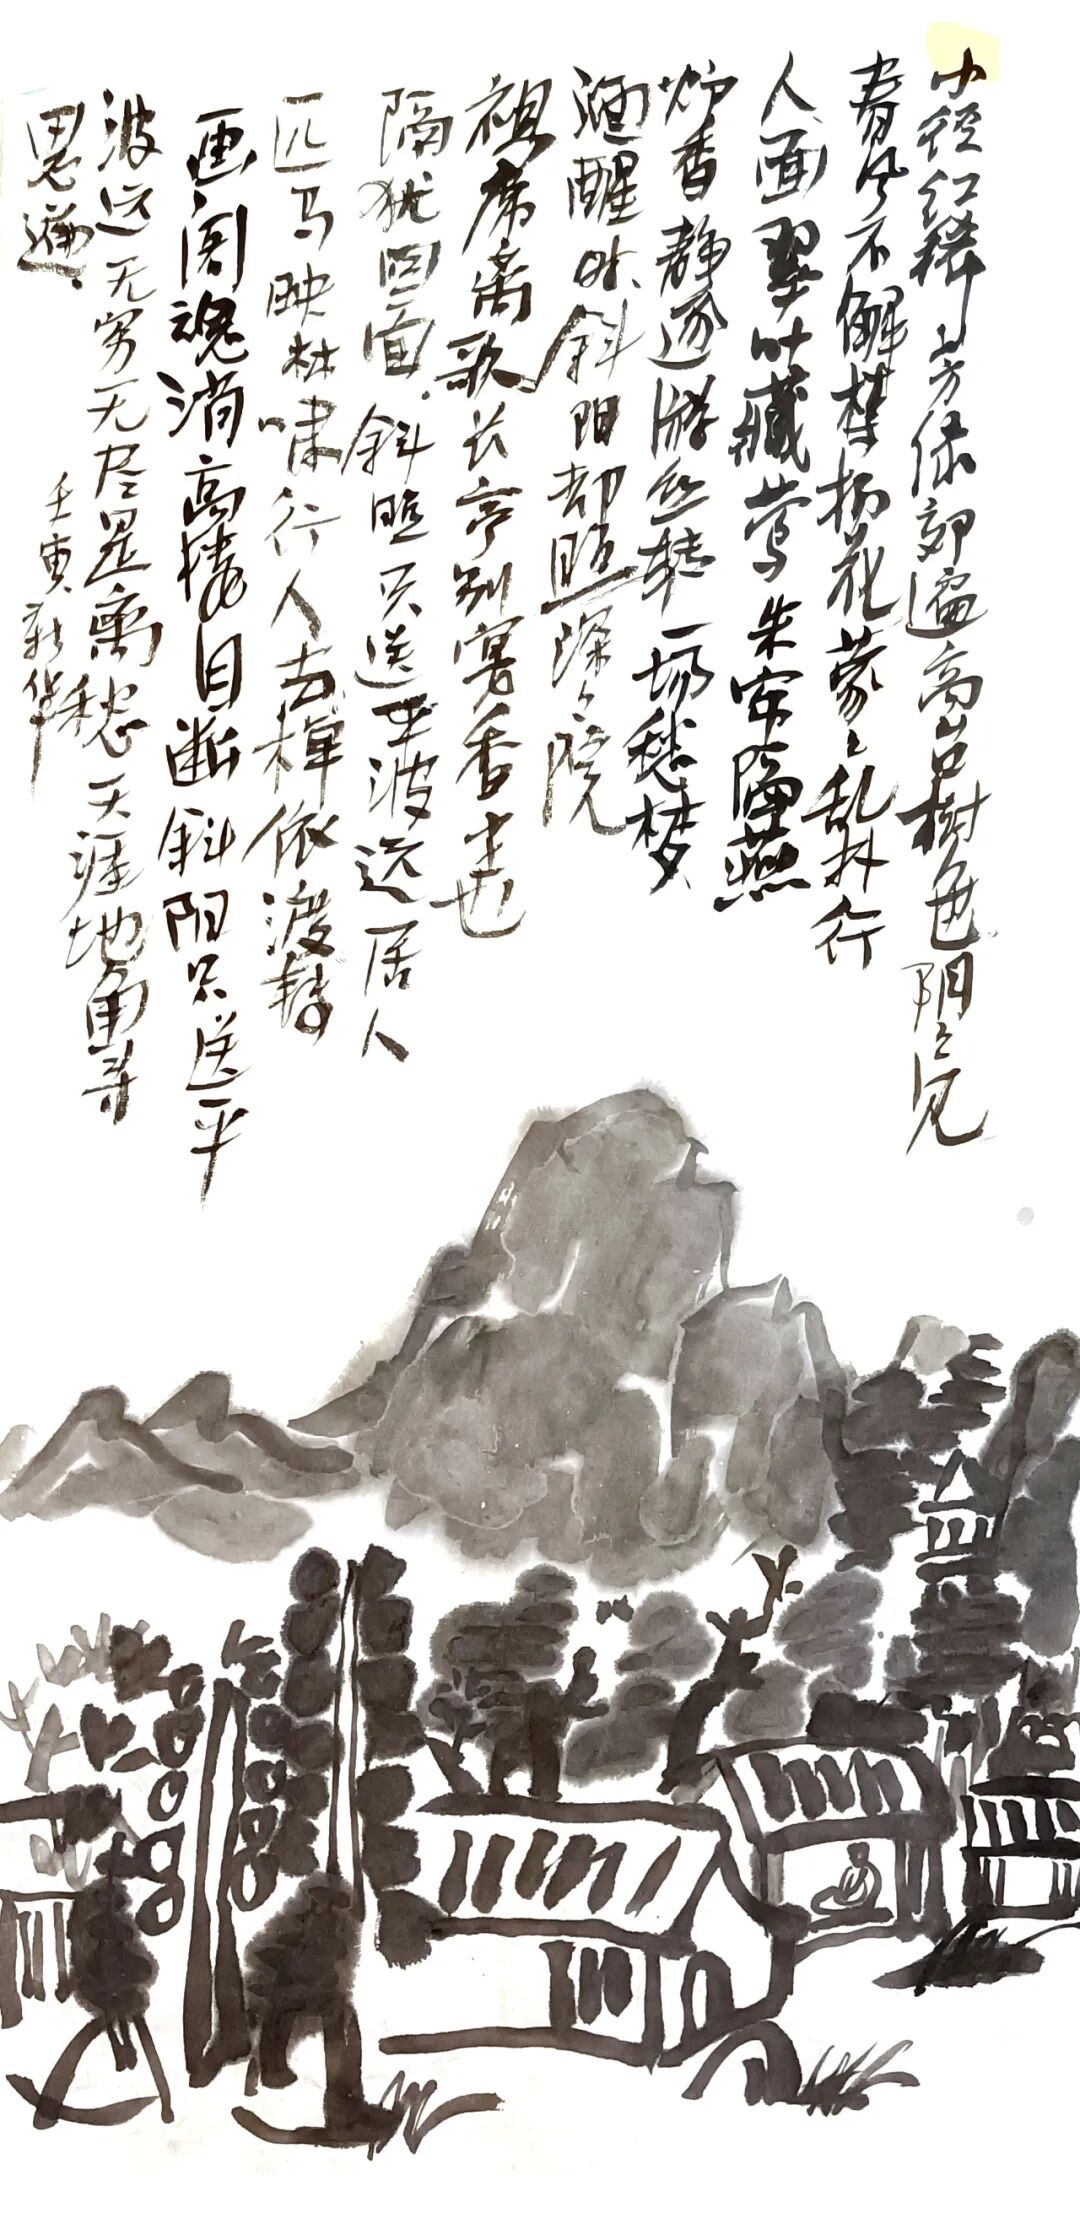 小径红稀芳绿郊遍高台树色阴々见
春风不解禁杨花蒙々乱扑行
人面翠叶藏莺朱帘隔燕
炉香静逐游丝转一场愁梦
酒醒时斜阳却照深々院
祖席离歌长亭别宴香尘也
隔犹回面斜照只送平波远居人
匹马映林嘶行人去棹依渡转
画阁魂消高楼目断斜阳只送平
波远无穷无尽是离愁天涯地角寻
思遍
壬寅新华